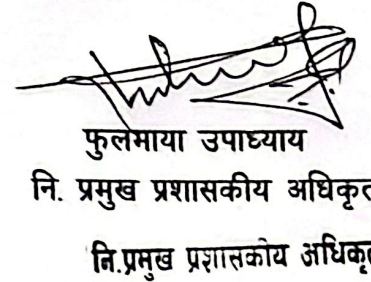 फुलमाया उपाध्याय
नि. प्रमुख प्रशासकीय अधिकृत
नि.प्रमुख प्रशासकीय अधिकृत